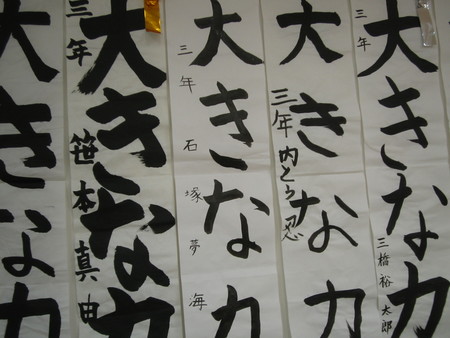 大きな力
三年 三橋裕太郎
大きな力
三年 内とう忍
大きな力
三年 石塚夢海
大きな力
三年 笹本真由
大きな力